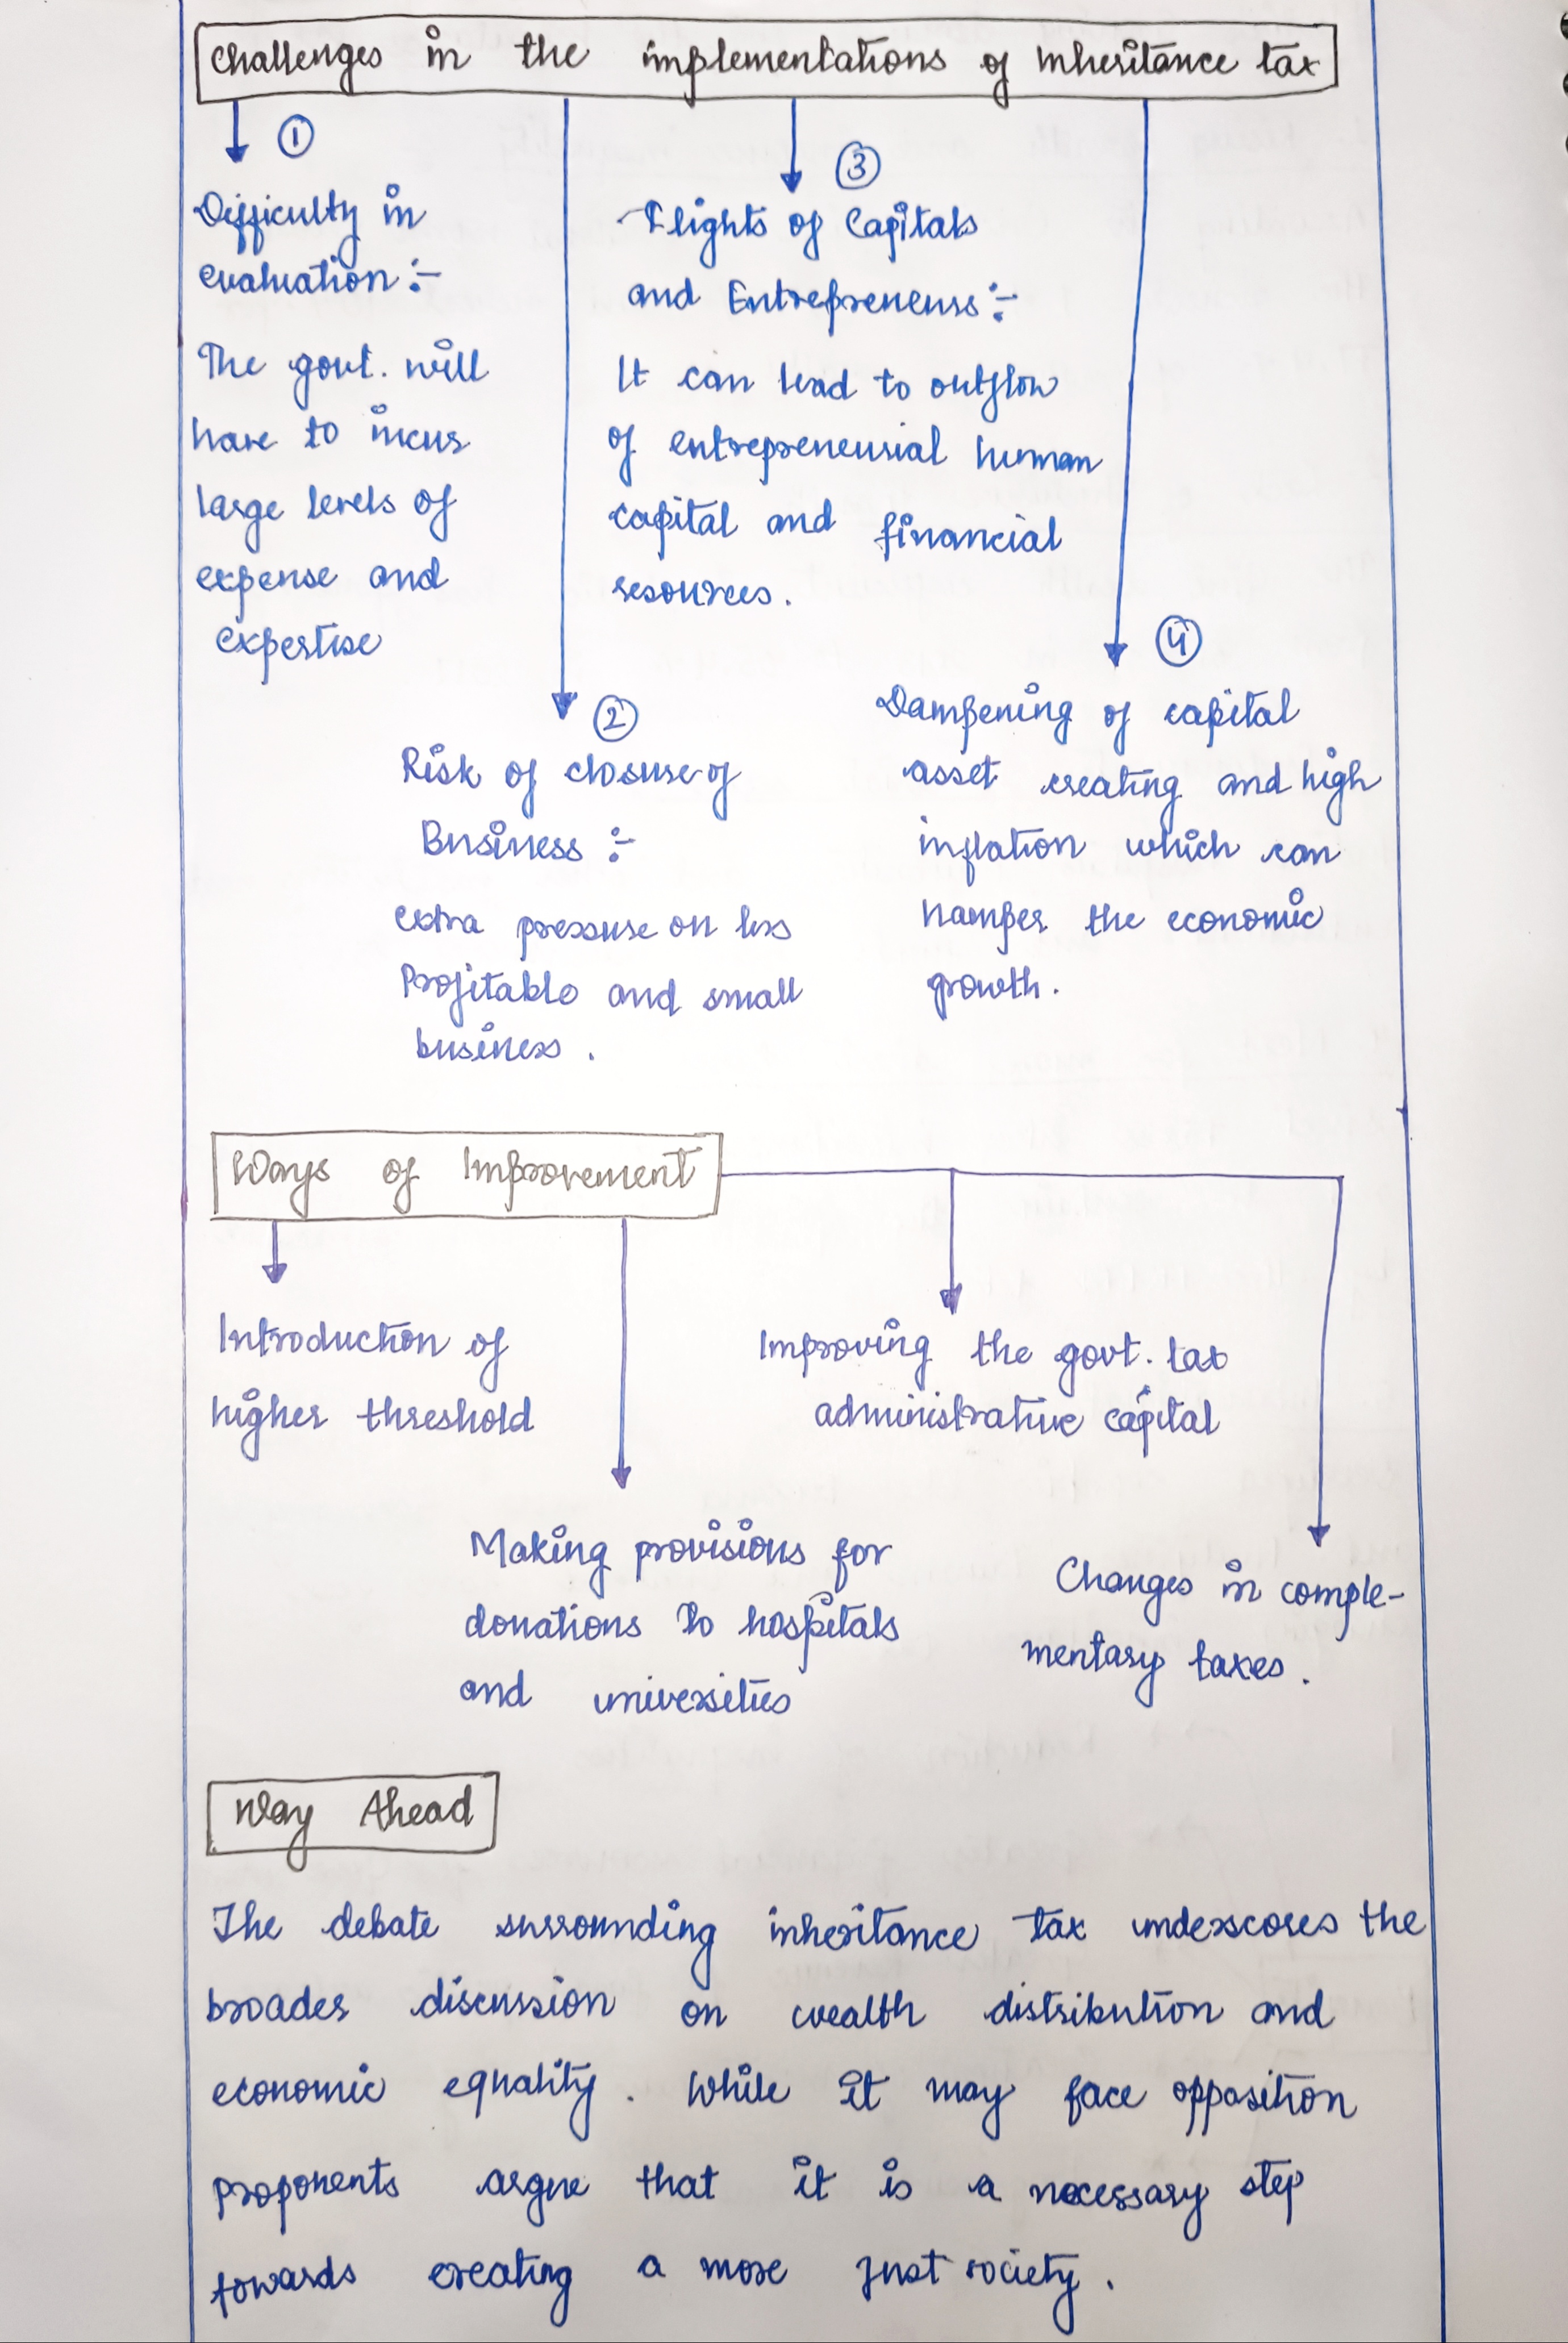 Challenges in the implementations of inheritance tax
①
Difficulty in
evaluation :-
The govt. will
have to incur
large levels of
expense and
expertise
②
Risk of closure of
Business :-
extra pressure on less
Profitable and small
business .
③
Flights of Capitals
and Entrepreneurs :-
It can lead to outflow
of entrepreneurial human
capital and financial
resources .
④
Dampening of capital
asset creating and high
inflation which can
hamper the economic
growth .
Ways of Improvement
Introduction of
higher threshold
Making provisions for
donations to hospitals
and universities
Improving the govt. tax
administrative capital
Changes in comple-
mentary taxes .
Way Ahead
The debate surrounding inheritance tax underscores the
broader discussion on wealth distribution and
economic equality . While it may face opposition
proponents argue that it is a necessary step
towards creating a more just society .